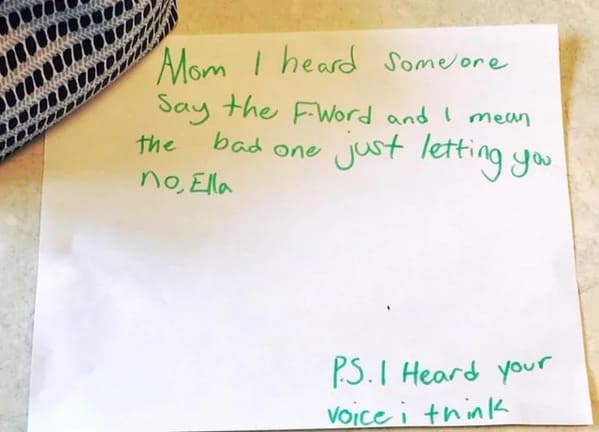 Mom I heard someone
Say the F-Word and I mean
the bad one just letting you
no, Ella
P.S. I Heard your
voice i think